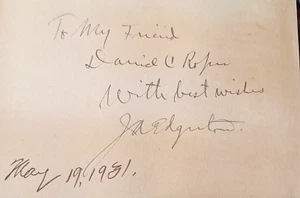 To My Friend
Daniel C Roper
With best wishes
J A Edgerton.
May 19, 1931.